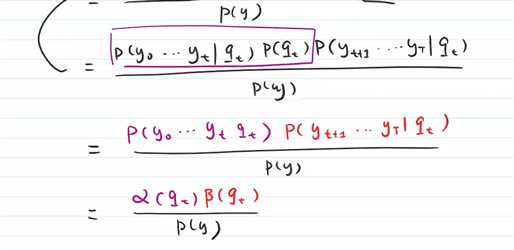 = P(y)
= P(y₀ ⋯ y_t | q_t) P(q_t) P(y_{t+1} ⋯ y_T | q_t)
P(y)
= P(y₀ ⋯ y_t q_t) P(y_{t+1} ⋯ y_T | q_t)
P(y)
= α(q_t) β(q_t)
P(y)